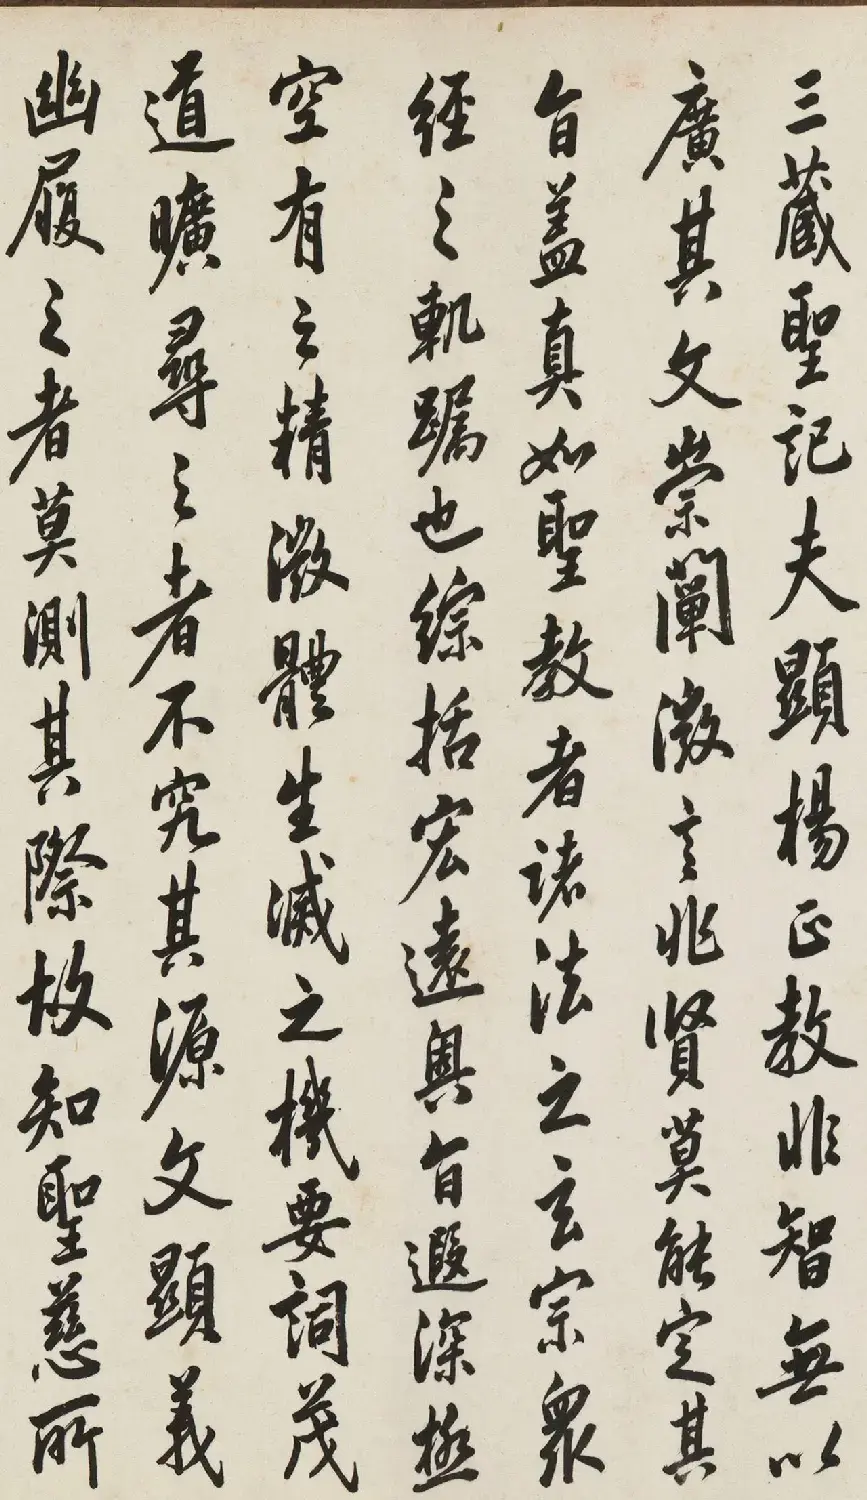 三藏聖記夫顯楊正教非智無以
廣其文崇闡微言非賢莫能定其
旨盖真如聖教者諸法之玄宗衆
經之軌躅也綜括宏遠奧旨遐深極
空有之精微體生滅之機要詞茂
道曠尋之者不究其源文顯義
幽履之者莫測其際故知聖慈所